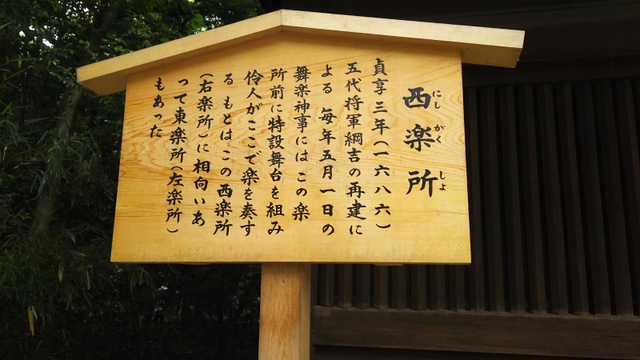 西楽所
にし がく しょ
貞享三年(一六八六)
五代将軍綱吉の再建に
よる 毎年五月一日の
舞楽神事には この楽
所前に特設舞台を組み
伶人がここで楽を奏す
る もとは この西楽所
(右楽所)に相向いあ
って東楽所(左楽所)
もあった